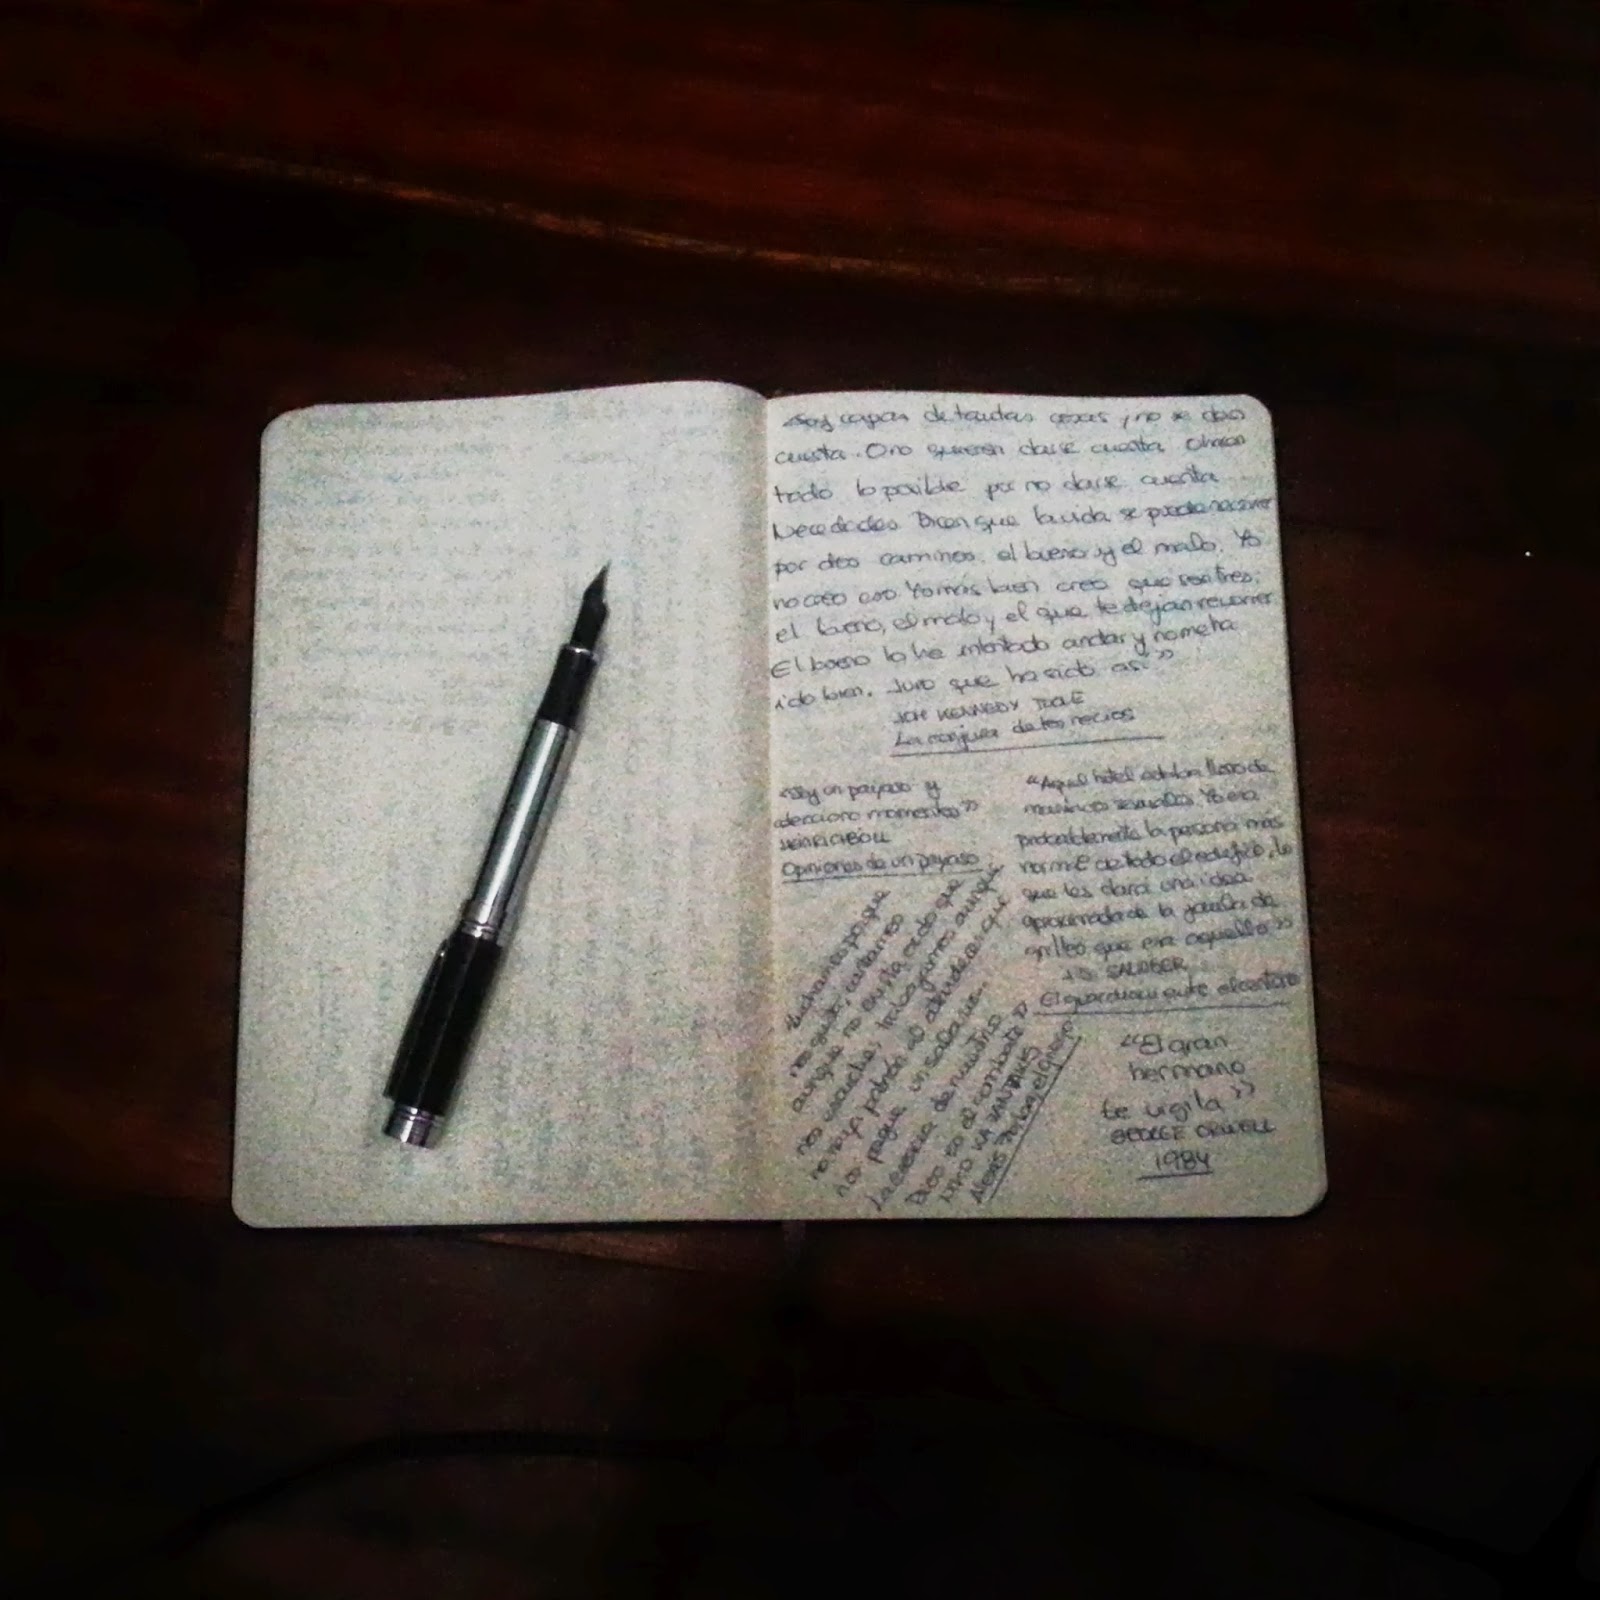 Soy capas de tantas cosas y no se dan
cuenta. O no quieren darse cuenta. O hacen
todo lo posible por no darse cuenta
Necedades. Dicen que la vida se puede recorrer
por dos caminos: el bueno y el malo. Yo
no creo eso. Yo más bien creo que son tres:
el bueno, el malo y el que te dejan recorrer.
El bueno lo he intentado andar y no me ha
ido bien. Juro que ha sido así”
KENNEDY TOOLE
La conjura de los necios
“Soy un payaso y
colecciono momentos”
HEINRICH BÖLL
Opiniones de un payaso
“Aquel hotel estaba lleno de
maníacos sexuales. Yo era
probablemente la persona más
normal de todo el edificio, lo
que les dará una idea
aproximada de la jaula de
grillos que era aquello”
J.D. SALINGER
El guardián entre el centeno
Luchamos porque
nos gusta, cantamos
aunque no exista oído que
nos escuche, trabajamos aunque
no haya patrón al
nos pague un salario...
La esencia de nuestro
Dios es el combate”
NIKO KAZANTZAKIS
Alexis Zorba, el griego
“El gran
hermano
te vigila”
GEORGE ORWELL
1984